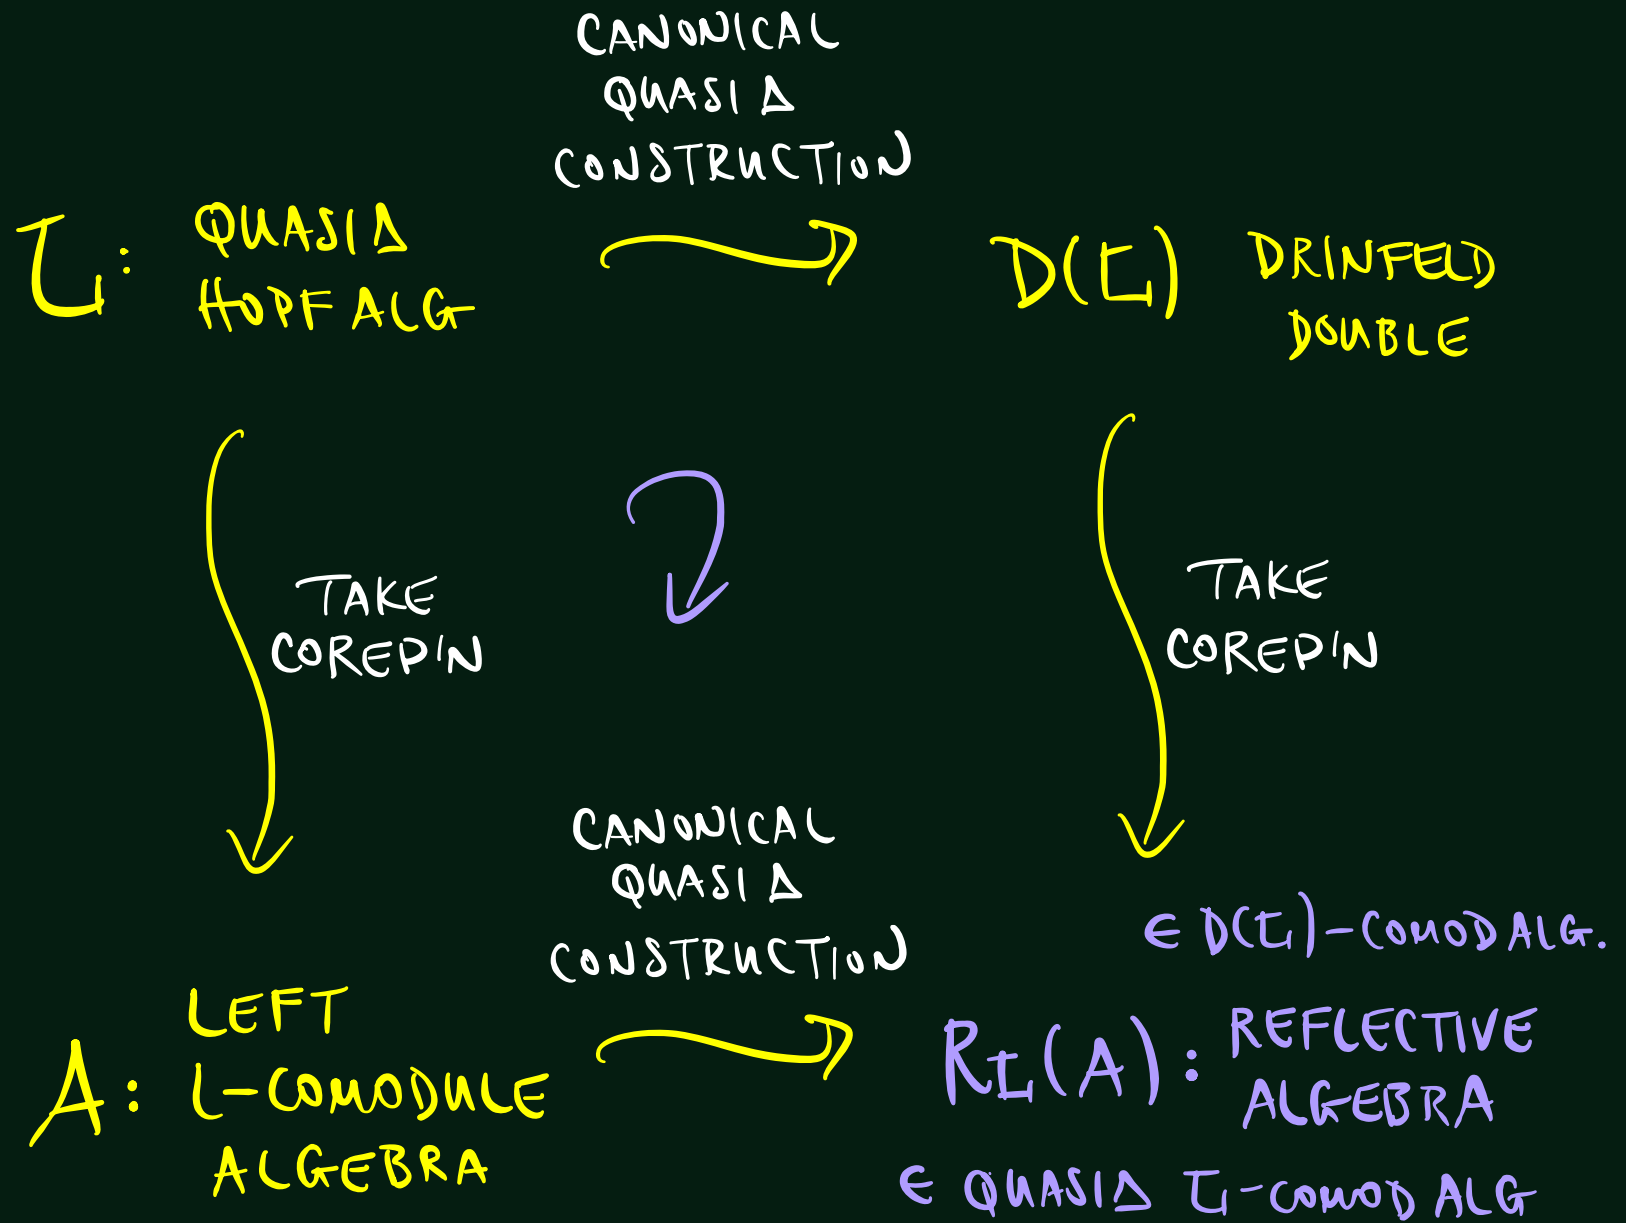 CANONICAL
QUASI Δ
CONSTRUCTION
L: QUASI Δ
HOPF ALG
D(L) DRINFELD
DOUBLE
TAKE
COREP'N
TAKE
COREP'N
CANONICAL
QUASI Δ
CONSTRUCTION
∈ D(L)-COMOD ALG.
A: LEFT
L-COMODULE
ALGEBRA
R_L(A): REFLECTIVE
ALGEBRA
∈ QUASI Δ L-COMOD ALG